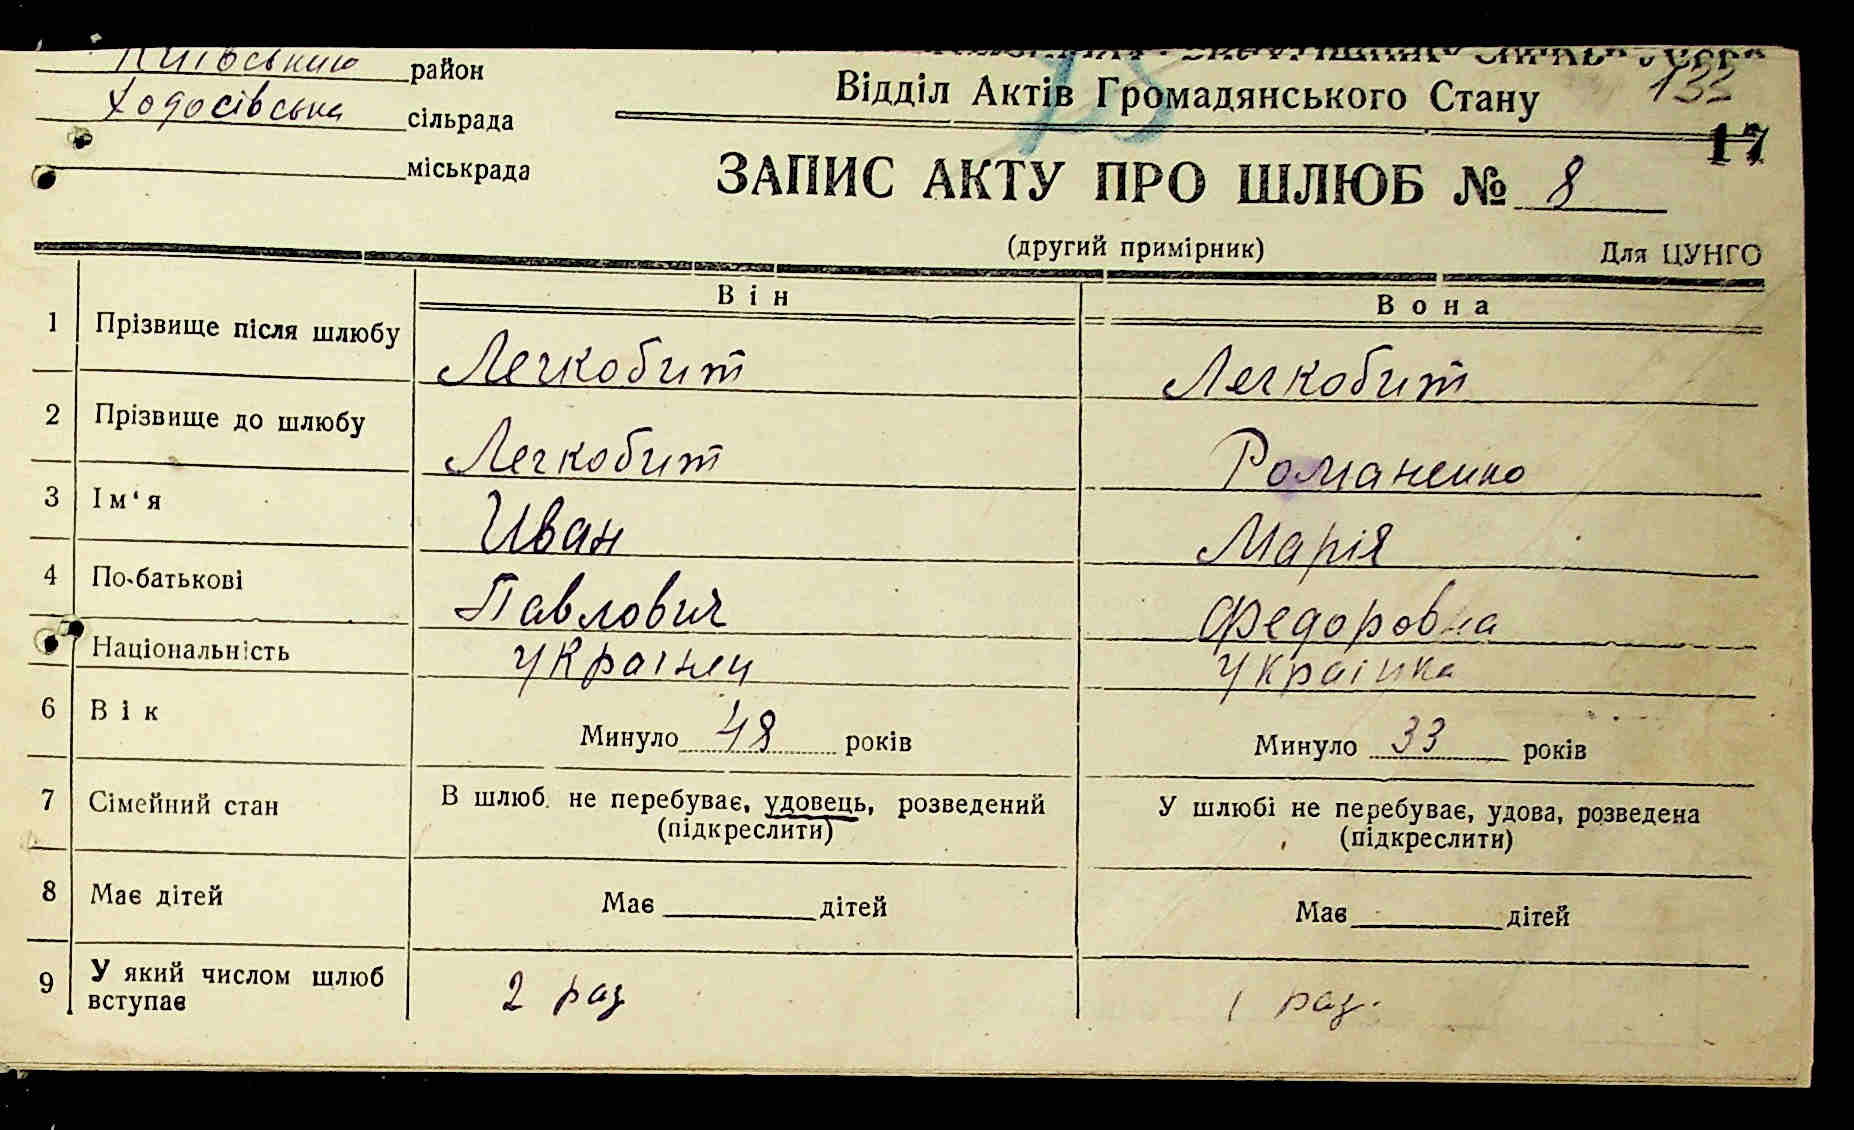 Київський район
Ходосівська сільрада
міськрада
Відділ Актів Громадянського Стану
133
17
ЗАПИС АКТУ ПРО ШЛЮБ № 8
(другий примірник) Для ЦУНГО
Він Вона
1 Прізвище після шлюбу Легкобит Легкобит
2 Прізвище до шлюбу Легкобит Романенко
3 Ім‘я Иван Марія
4 По-батькові Павлович Федоровна
Національність Українец Українка
6 Вік Минуло 48 років Минуло 33 років
7 Сімейний стан В шлюб. не перебуває, удовець, розведений У шлюбі не перебуває, удова, розведена
(підкреслити) (підкреслити)
8 Має дітей Має дітей Має дітей
9 У який числом шлюб вступає 2 раз 1 раз.